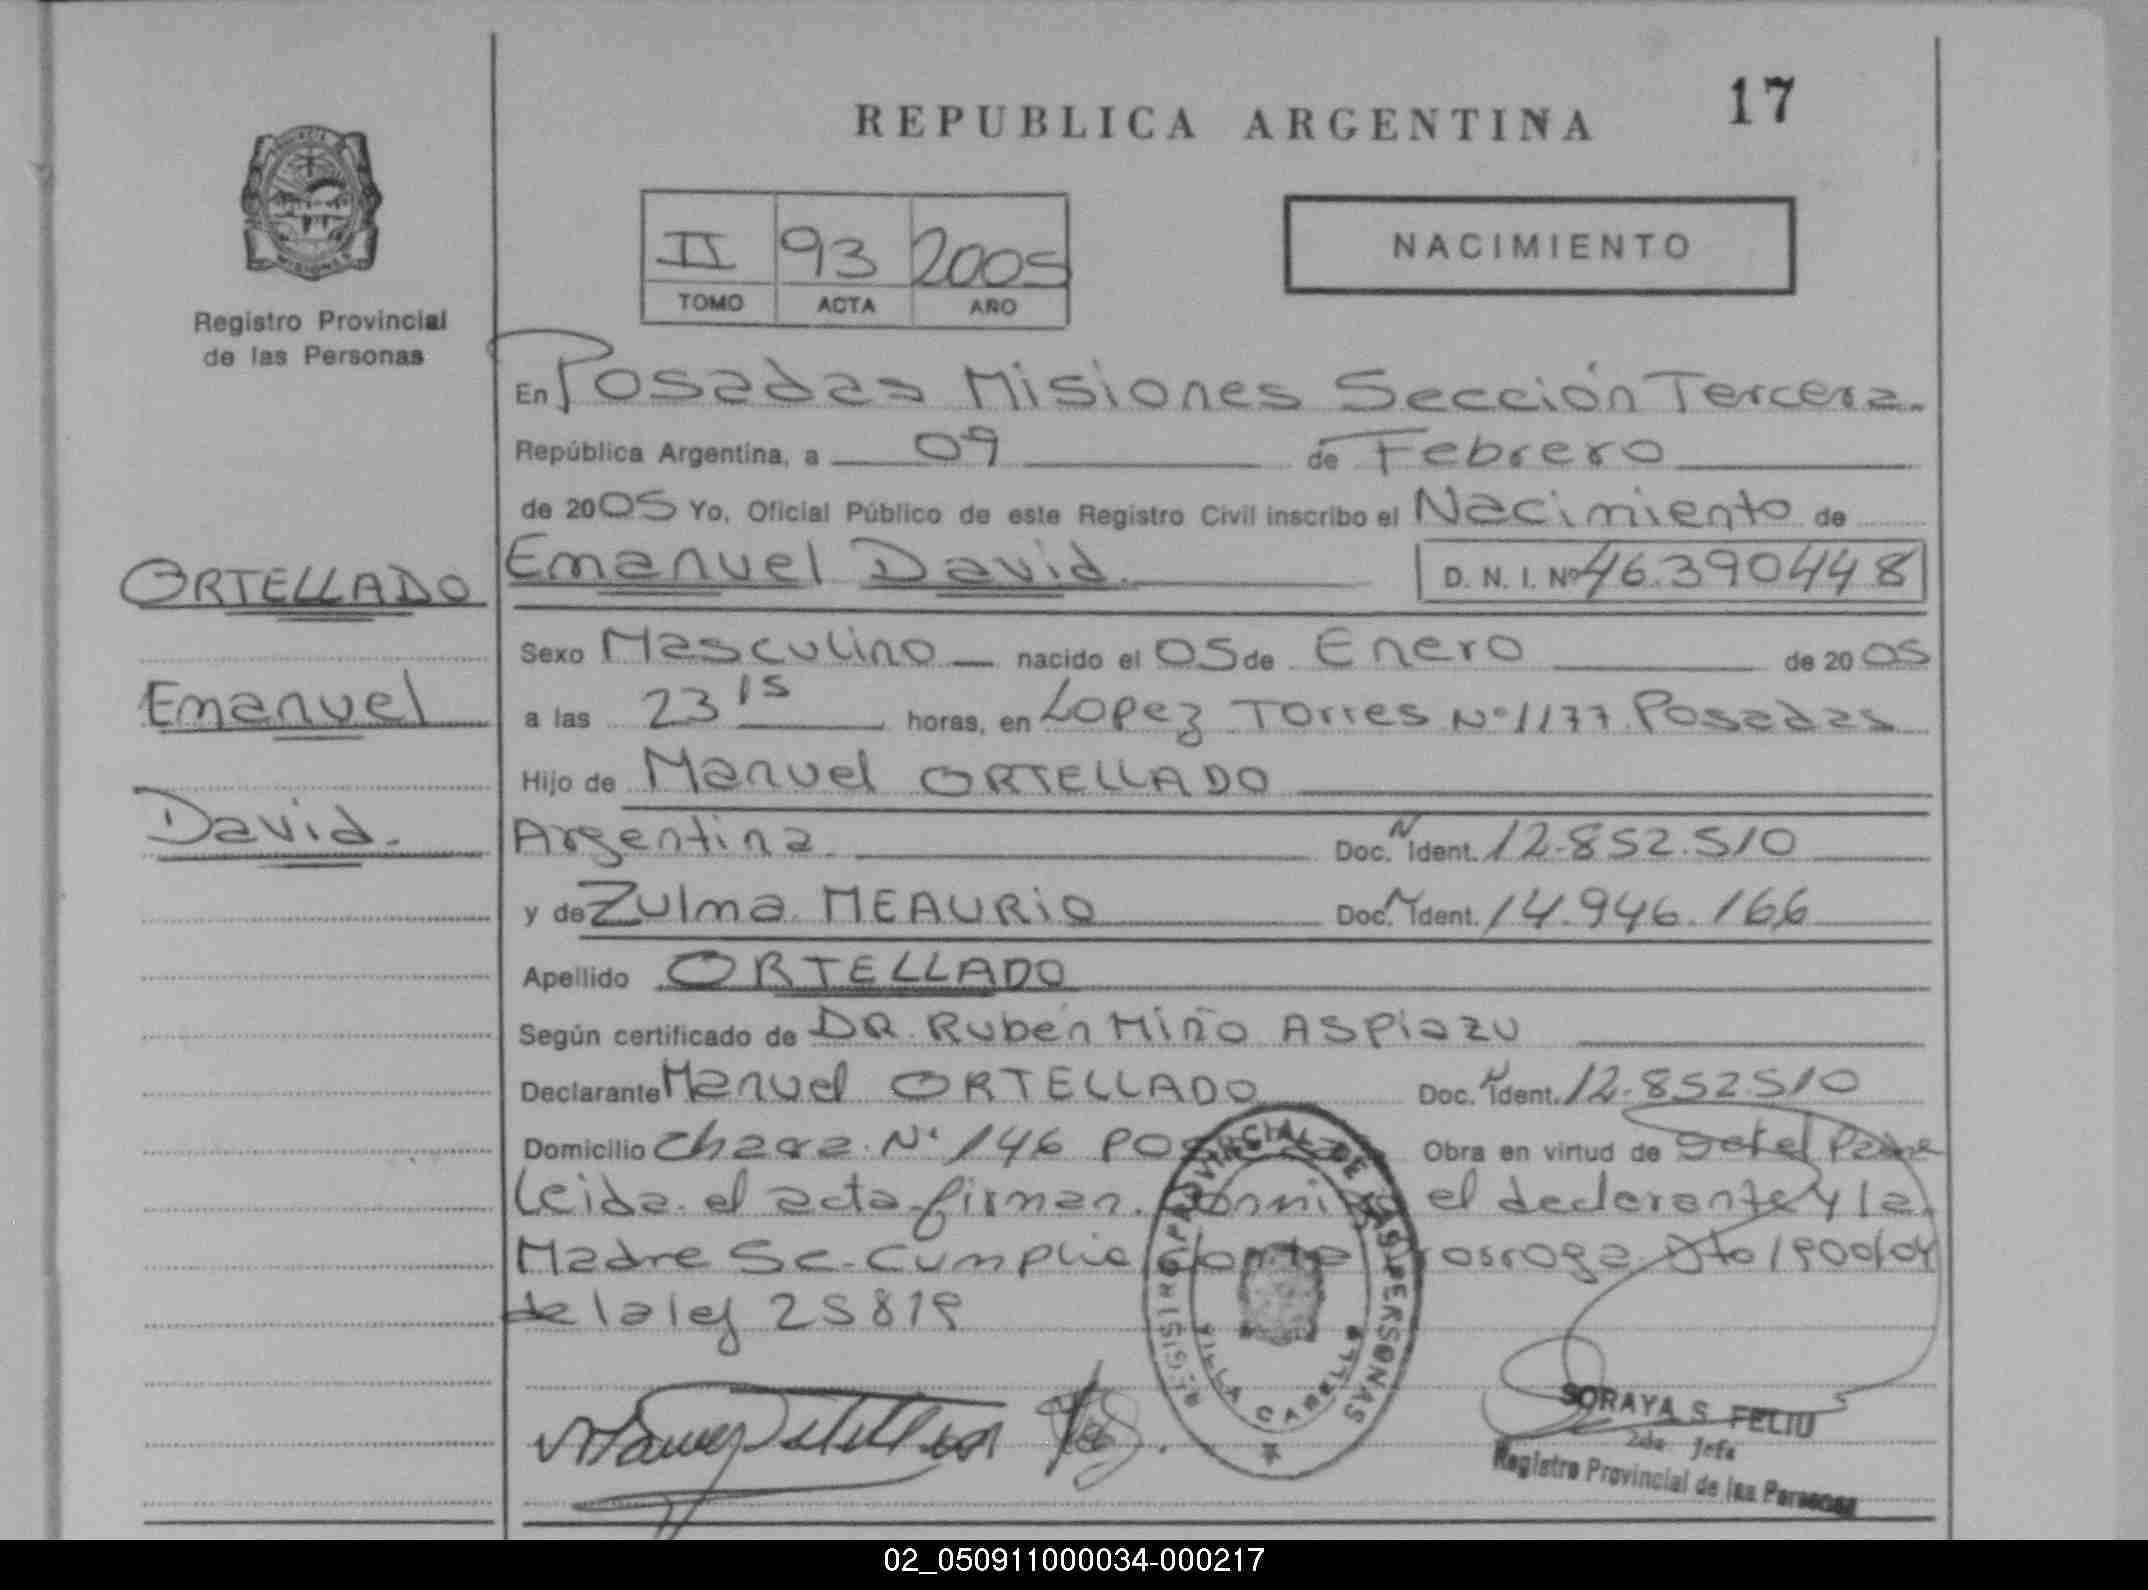 REPUBLICA ARGENTINA
17
II 93 2005
TOMO ACTA AÑO
NACIMIENTO
Registro Provincial
de las Personas
En Posadas Misiones Sección Tercera.
República Argentina, a 09 de Febrero
de 2005 Yo, Oficial Público de este Registro Civil inscribo el Nacimiento de
ORTELLADO
Emanuel David. D. N. I. Nº 46.390448
Sexo Masculino nacido el 05 de Enero de 2005
Emanuel
a las 23 15 horas, en Lopez Torres Nº 1177 Posadas
Hijo de Manuel ORTELLADO
David.
Argentina Doc. N Ident. 12.852.510
y de Zulma MEAURIO Doc. N Ident. 14.946.166
Apellido ORTELLADO
Según certificado de DR. Rubén Miño ASPiazu
Declarante Manuel ORTELLADO Doc. N Ident. 12.852510
Domicilio Nº 146 Obra en virtud de Padre
Leida el acta firman el declarante y la
Madre Se Cumplio Dto 1900/04
de la ley 25819
REGISTRO PROVINCIAL DE LAS PERSONAS
VILLA CABELLO
SORAYA S. FELIU
2da Jefa
Registro Provincial de las Personas
02_050911000034-000217